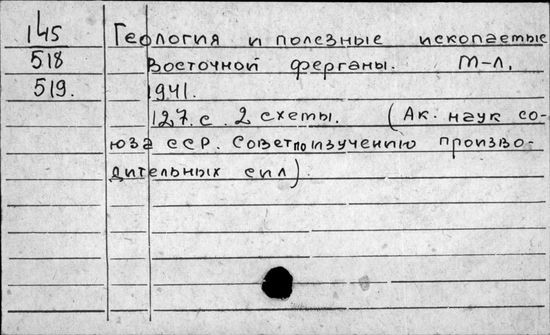 145 Геология и полезные ископаемые
518 Восточной Ферганы. М-Л,
519. 1941.
127. с. 2 схемы. (Ак. наук со-
юза ССР. Совет по изучению произво-
дительных сил).